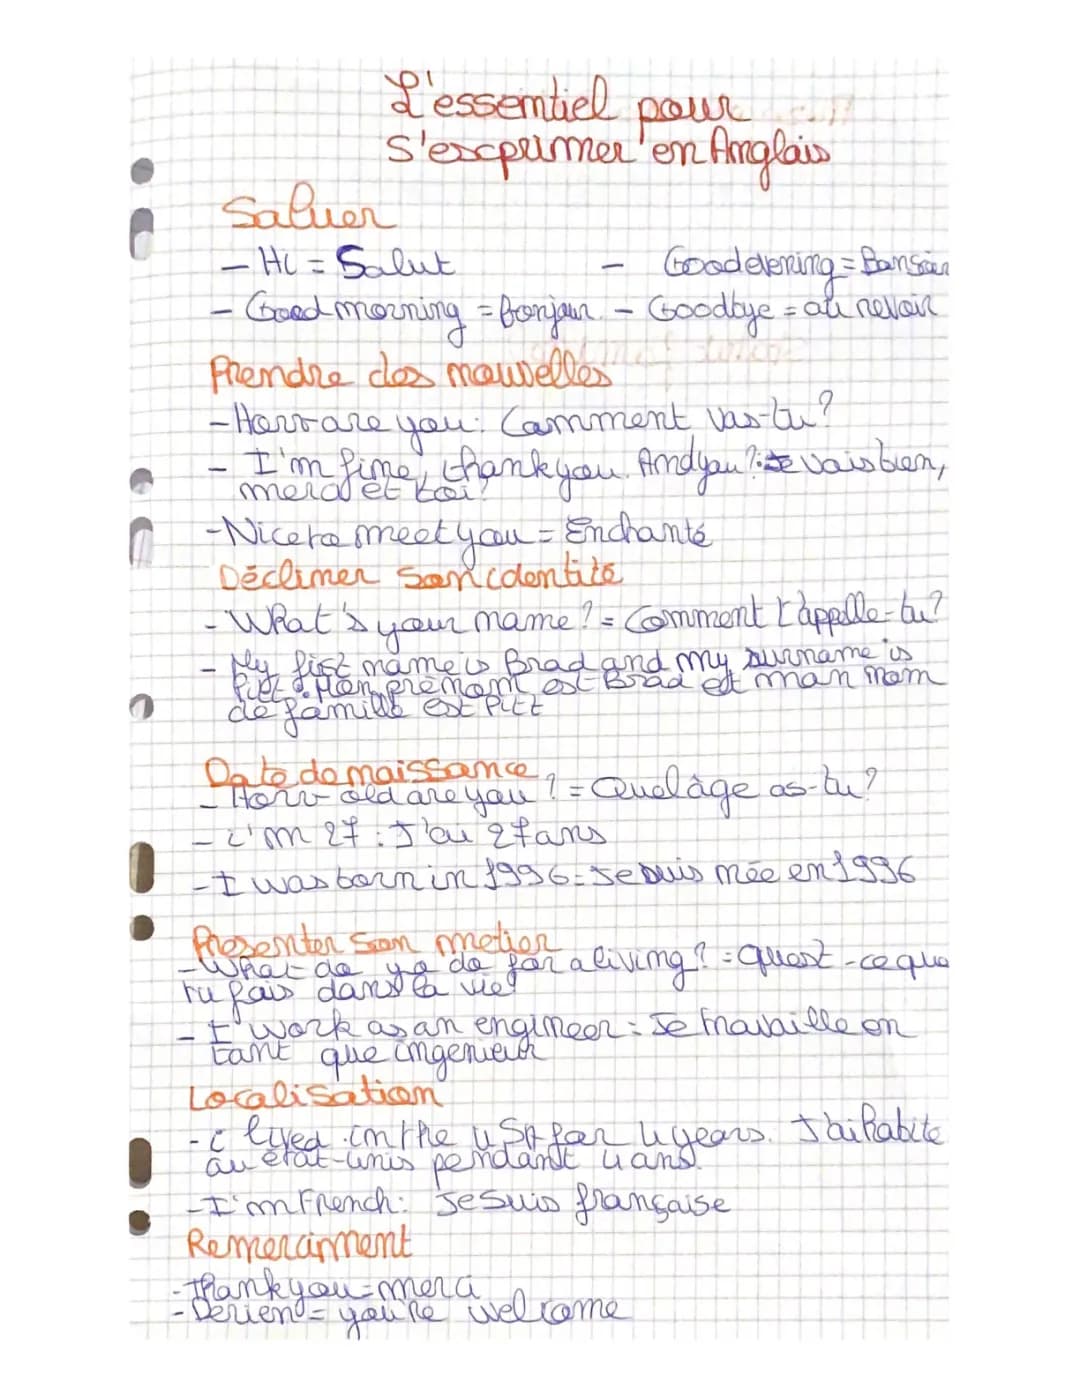 L'essentiel pour
s'exprimer en Anglais
Saluer
- Hi = Salut - Good evening = Bonsoir
- Good morning = bonjour - Goodbye = au revoir
Prendre des nouvelles
- How are you : Comment vas-tu ?
- I'm fine, thank you. And you ? : Je vais bien,
merci et toi ?
- Nice to meet you = Enchanté
Décliner son identité
- What's your name ? = Comment t'appelle-tu ?
- My first name is Brad and my surname is
Pitt : Mon prénom est Brad et mon nom
de famille est Pitt
Date de naissance
- How old are you ? = Quel âge as-tu ?
- i'm 27 : J'ai 27 ans
- I was born in 1996 = Je suis née en 1996
Presenter son metier
- What do yo do for a living ? = quest-ce que
tu fais dans la vie ?
- I work as an engineer = Je travaille en
tant que ingenieur
Localisation
- i lived in the USA for 4 years. J'ai habite
au état-unis pendant 4 ans.
- I'm French : Je suis française
Remerciment
- Thank you = merci
- De rien = you're welcome